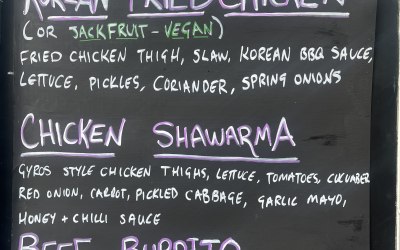 KOREAN FRIED CHICKEN
(OR JACKFRUIT - VEGAN)
FRIED CHICKEN THIGH, SLAW, KOREAN BBQ SAUCE,
LETTUCE, PICKLES, CORIANDER, SPRING ONIONS
CHICKEN SHAWARMA
GYROS STYLE CHICKEN THIGHS, LETTUCE, TOMATOES, CUCUMBER
RED ONION, CARROT, PICKLED CABBAGE, GARLIC MAYO,
HONEY + CHILLI SAUCE
BEEF BURRITO